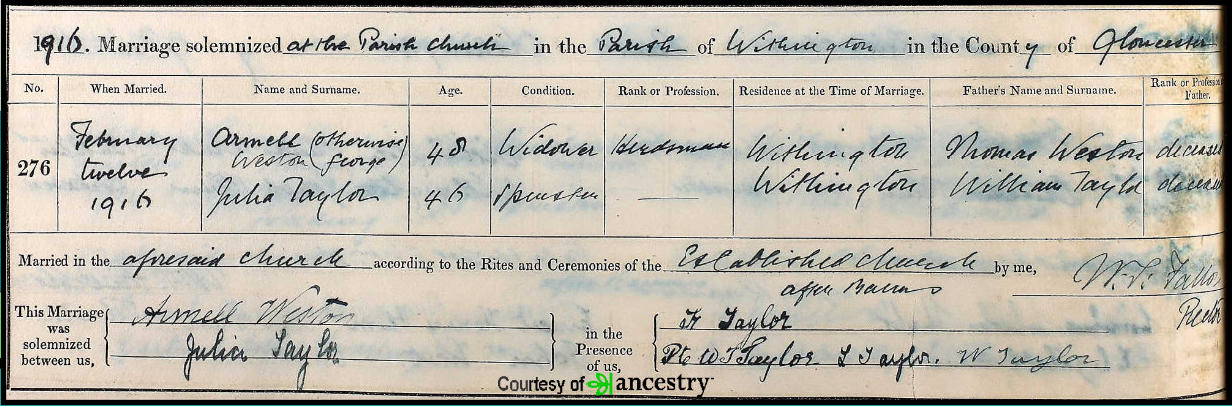 1916. Marriage solemnized at the Parish Church in the Parish of Withington in the County of Gloucester
No. When Married. Name and Surname. Age. Condition. Rank or Profession. Residence at the Time of Marriage. Father's Name and Surname. Rank or Profession Father.
276 February twelve 1916
Armell (otherwise George) Weston 48 Widower Herdsman Withington Thomas Weston deceased
Julia Taylor 46 Spinster — Withington William Taylor deceased
Married in the aforesaid Church according to the Rites and Ceremonies of the Established Church by me,
after Banns
W.
Rector
This Marriage was solemnized between us,
Armell Weston
Julia Taylor
in the Presence of us,
H Taylor
Pte W T Taylor L Taylor. W Taylor
Courtesy of ancestry